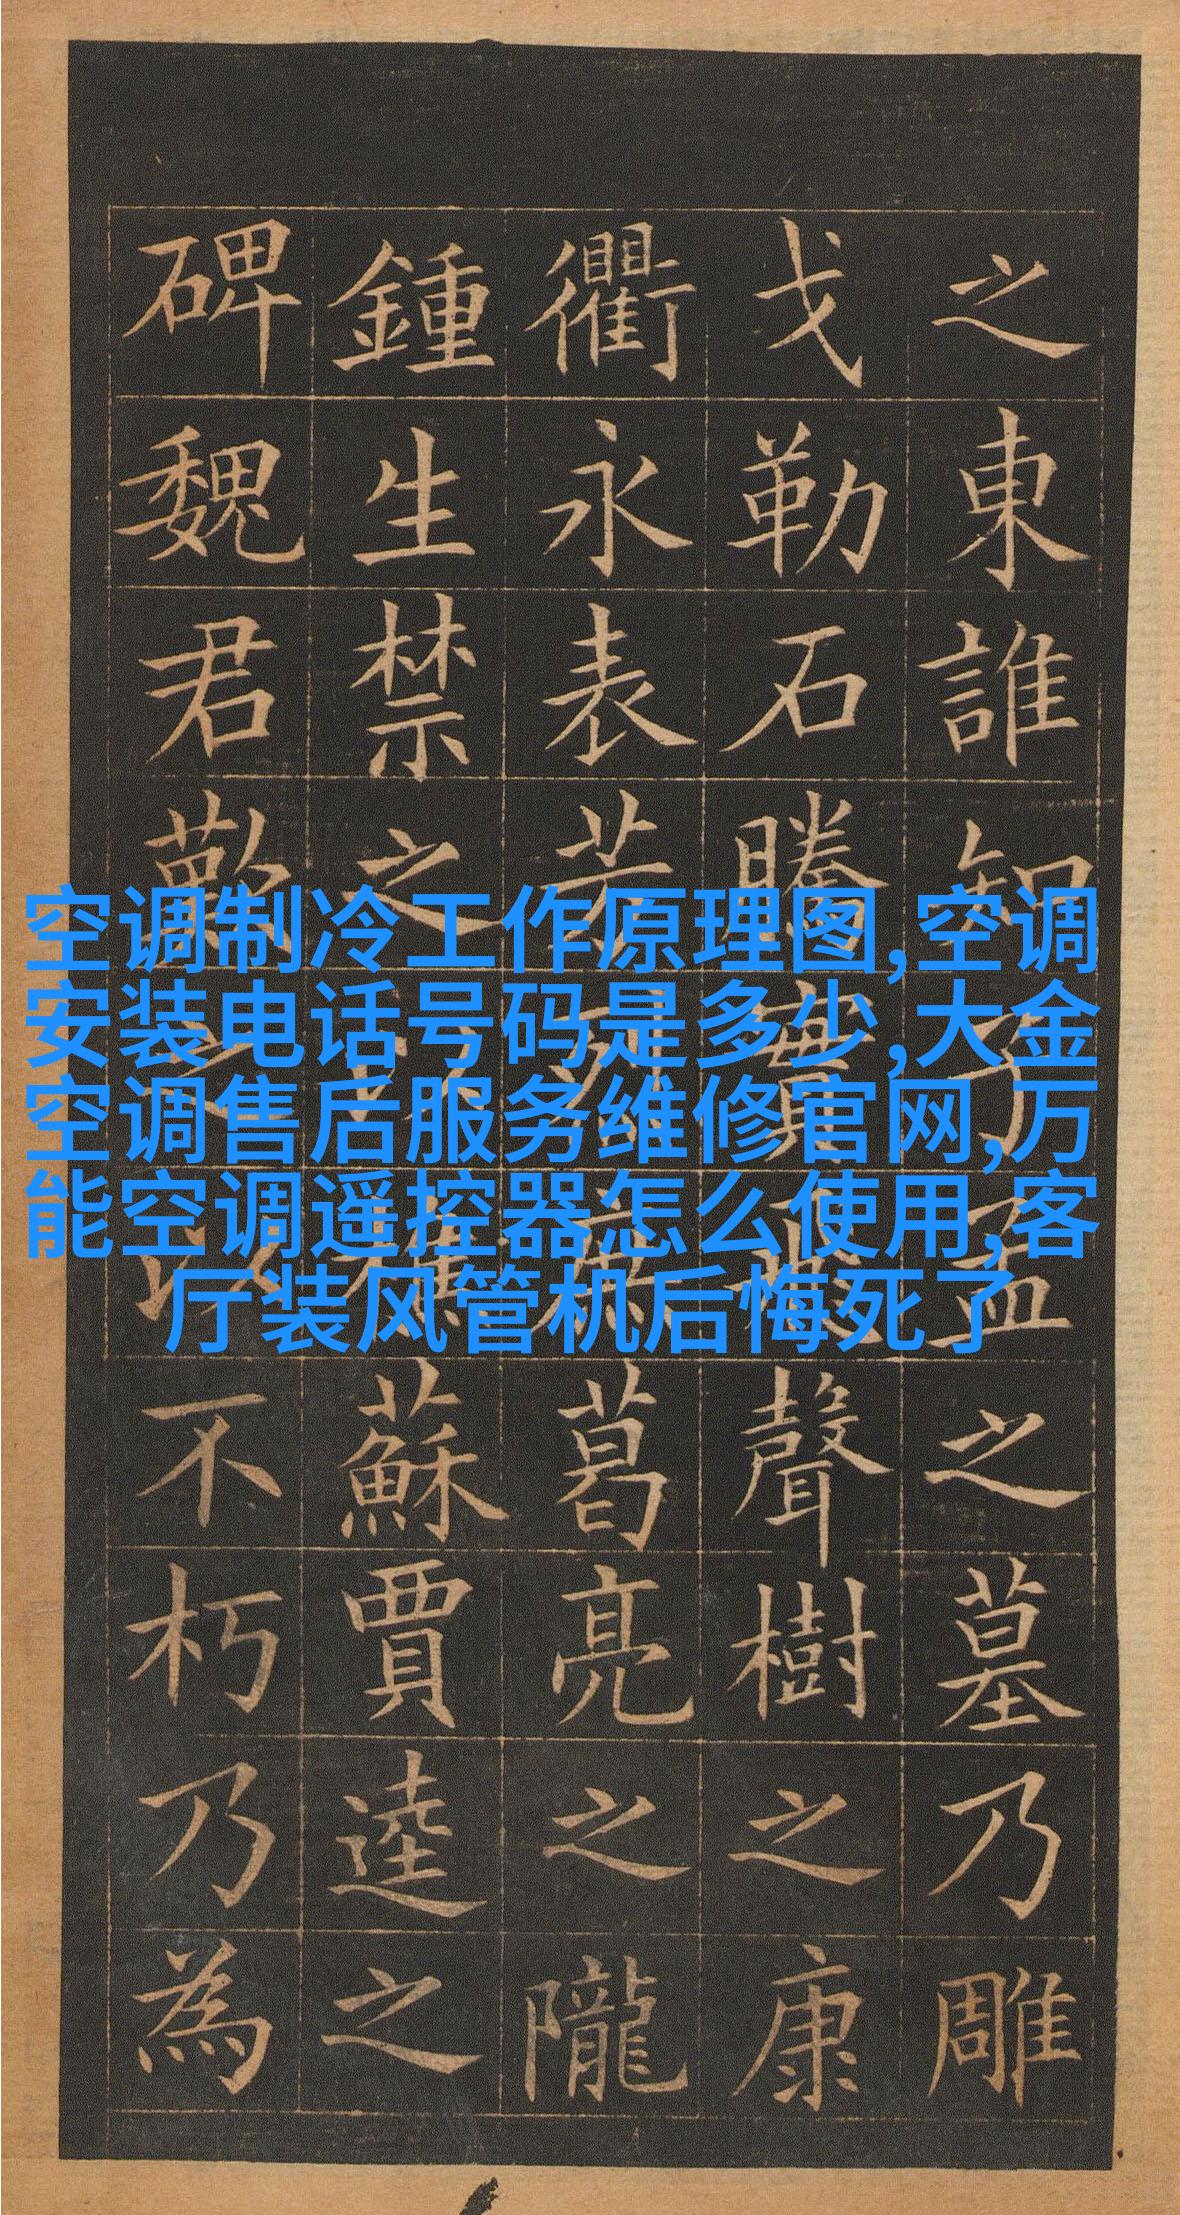 之東誰知子孟之墓乃雕
戈勒石騰實飛聲樹之康
衢永表芳葛亮之隴
鍾生禁之樵蘇賈逵之
碑魏君歎之以不朽乃為
空调制冷工作原理图,空调
安装电话号码是多少,大金
空调售后服务维修官网,万
能空调遥控器怎么使用,客
厅装风管机后悔死了